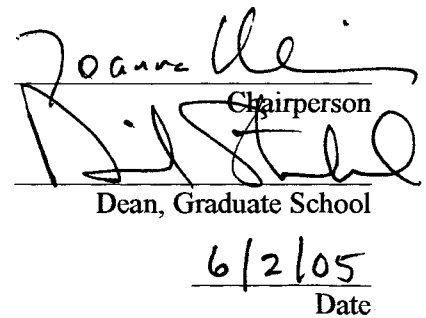 Joanna
Chairperson
Dean, Graduate School
6/2/05
Date